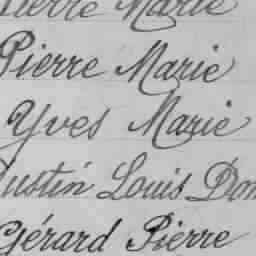 Pierre Marie
Pierre Marie
Yves Marie
Justin Louis
Gérard Pierre